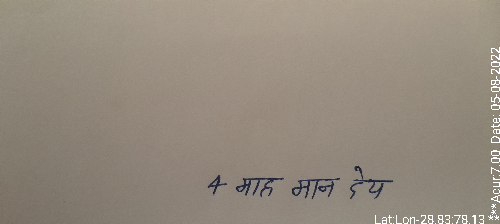 4 माह मान देय
Lat:Lon-28.83:78.13
Date: 05-08-2022